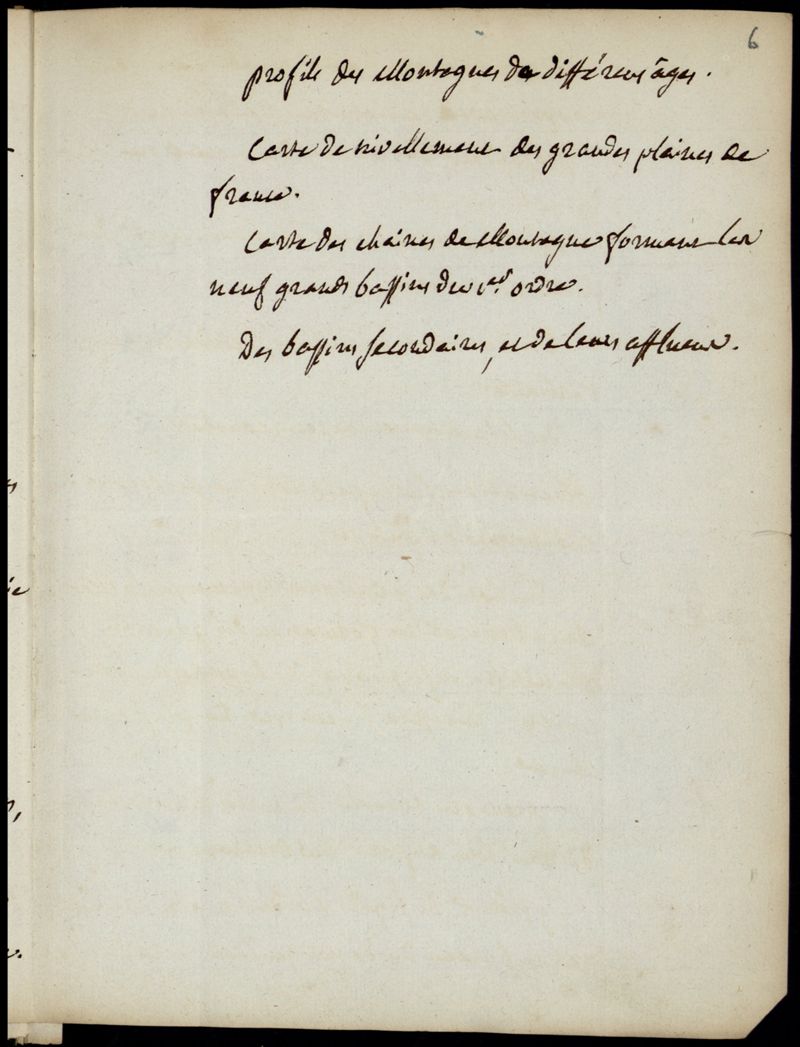 6
profils des Montagnes de différens âges.
Carte de nivellement des grandes plaines de
france.
Carte des chaines de Montagnes formant les
neuf grands bassins du 1er. ordre.
Des bassins secondaires, et de leurs affluens.